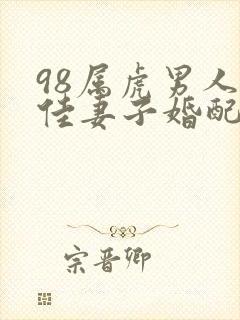 98属虎男人
佳妻子婚配
宗晋卿